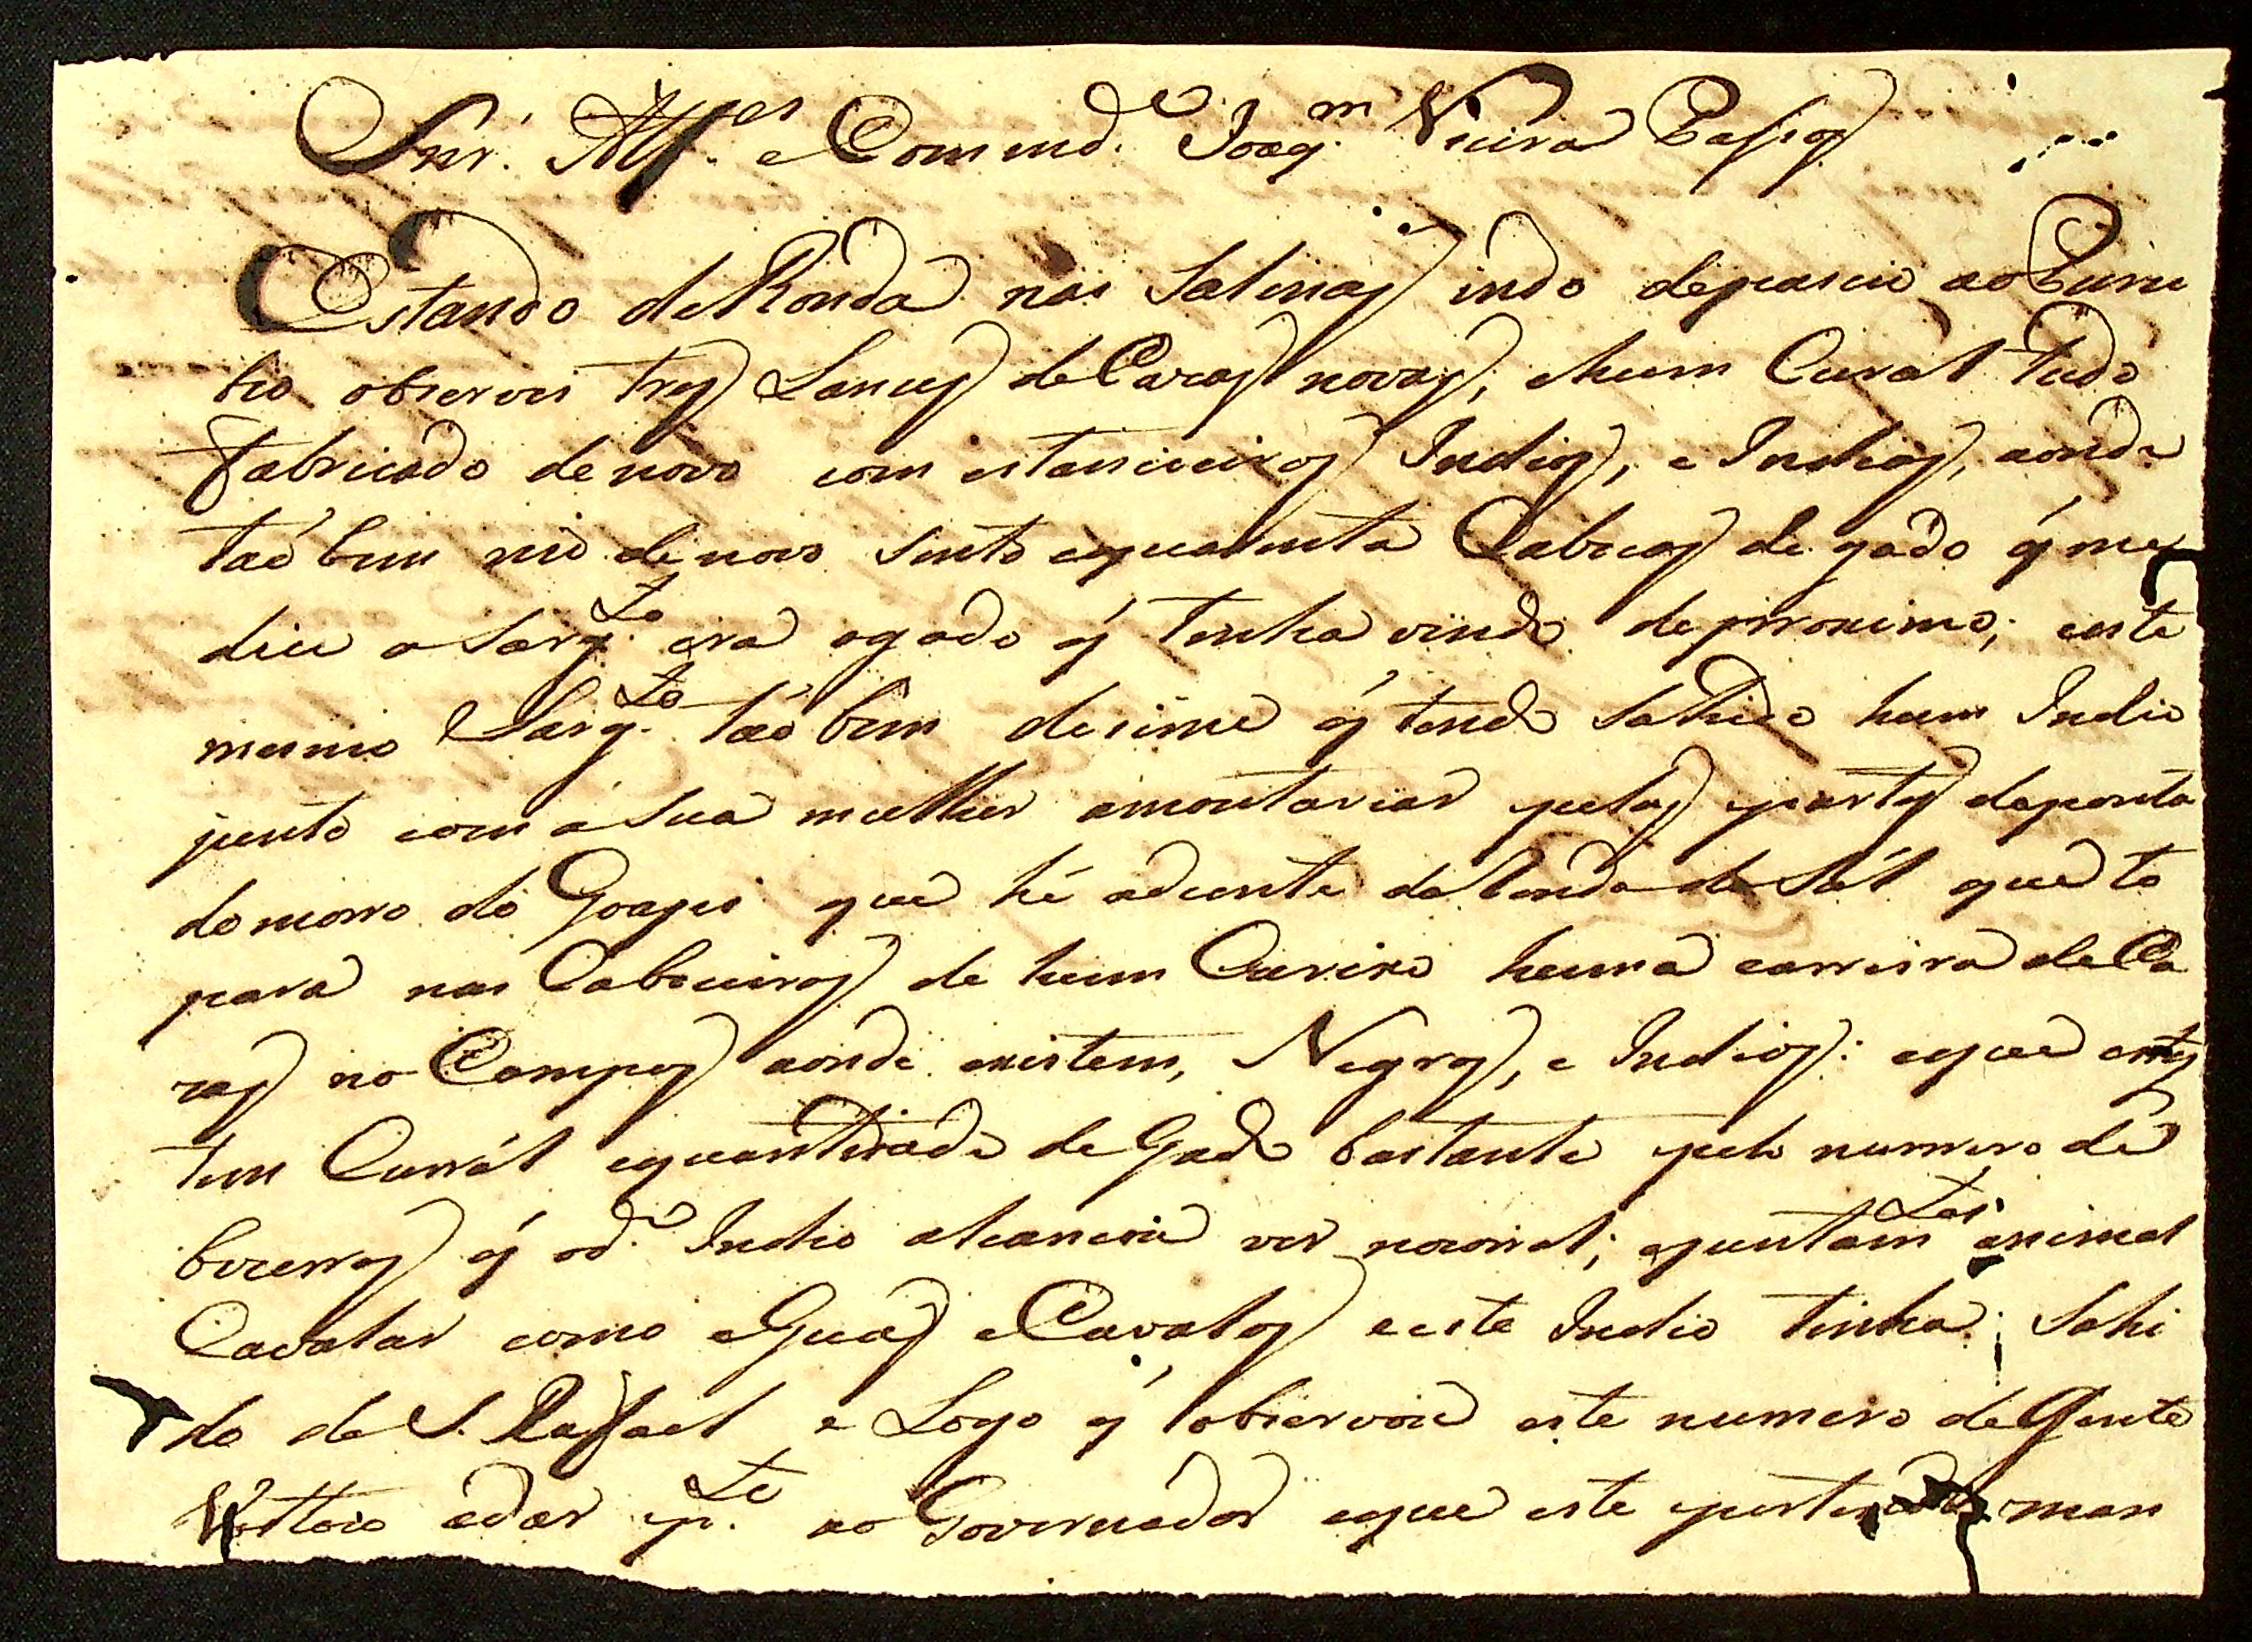 Snr. Alfes e Commde. Joaqm. Vieira Passos
Estando de Ronda nas Salinas indo depaseio ao Puru
bio observei tres Lances de Cazas novas, e hum Curál tudo
fabricado de novo com estancieiros Indios, e Indias, aonde
taõ bem vio de novo sento e quarenta Cabecas de gado q̃ me
dice o Sargto. era o gado q̃ tinha vindo deproximo; e este
mesmo Sargto. taõ bem desime q̃ tendo Sahido hum Indio
junto com á Sua mulher amontariar pelas partes daponta
domorro do Goapei que hé adiente da Ronda do Sál que to
para nas Cabeceiras de hum Curixe huma carreira de Ca
zas no Campos aonde existem, Negros, e Indios: e que estes
tem Currál e quantidade de Gado bastante pelo numero de
bezerros q̃ o de. Indio alcancou ver nocorral; e juntamtes animal
Cavalar como eguas e Cavalos e este Indio tinha Sahi
do de S. Rafael e Logo q̃ observou este numero de Gente
Voltou a dar pte. ao Governador e que este man